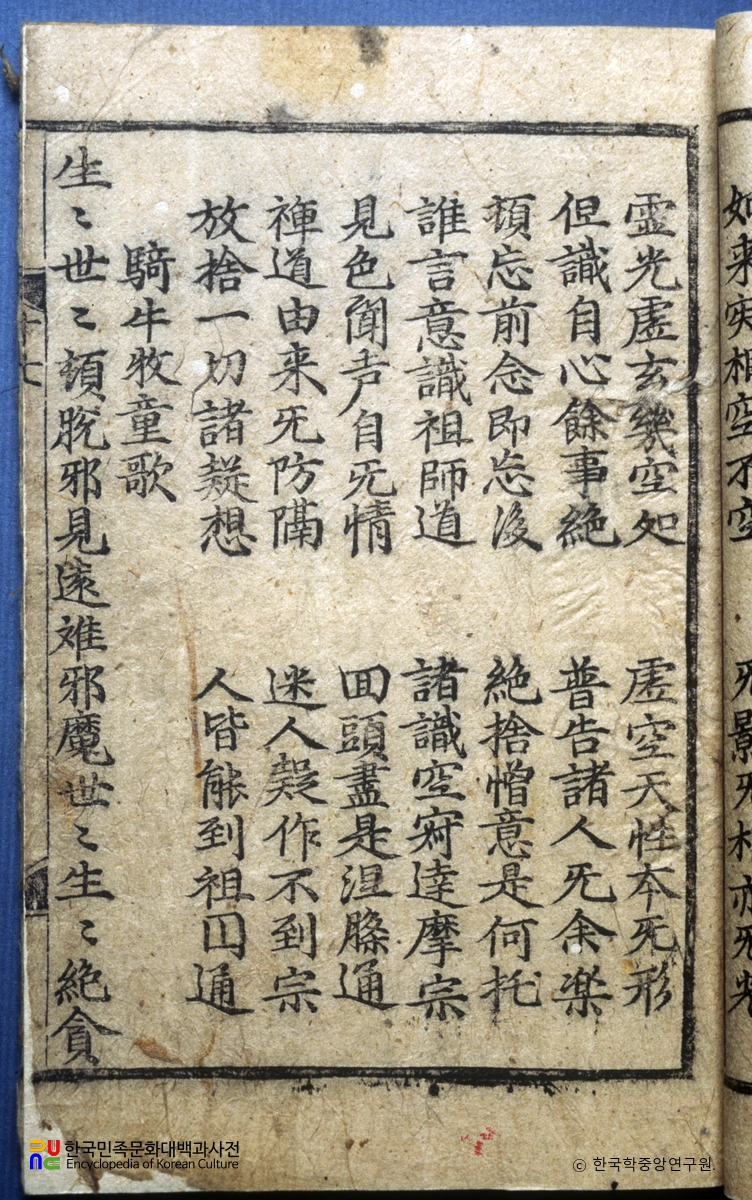 如来実相空不空 旡影旡相亦旡
灵光虚玄幾空処 虚空天性本旡形
但識自心餘事絶 普告諸人旡余楽
頓忘前念即忘後 絶捨憎意是何托
誰言意識祖師道 諸識空寂達摩宗
見色聞声自旡情 囬頭盡是涅槃通
禅道由来旡防隔 迷人疑作不到宗
放捨一切諸疑想 人皆能到祖囙通
騎牛牧童歌
生〻世〻頓脱邪見遠难邪魔世〻生〻絶貪
十七
한국민족문화대백과사전
Encyclopedia of Korean Culture
© 한국학중앙연구원